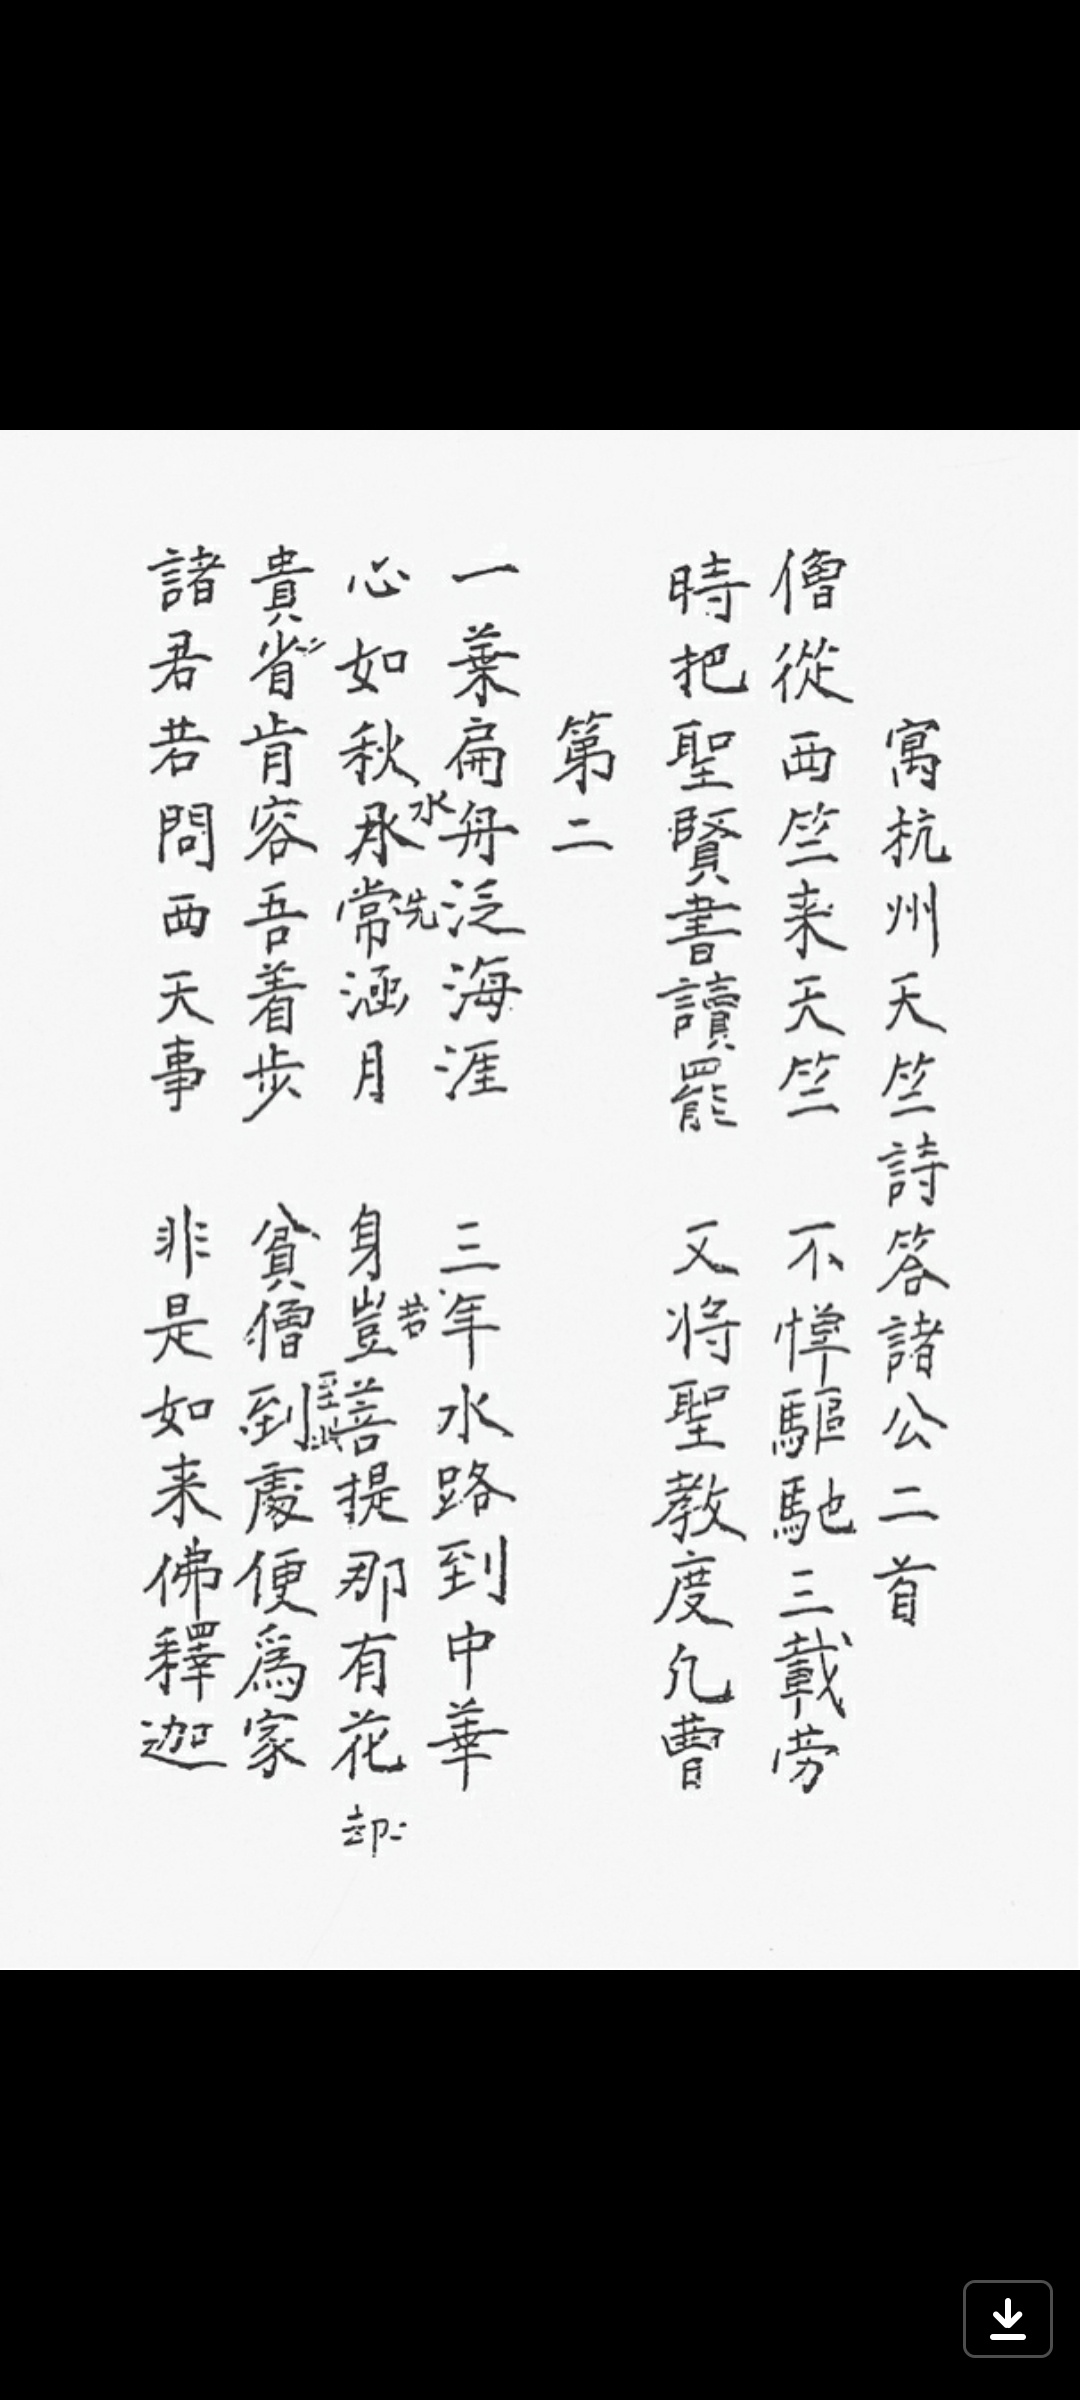 寓杭州天竺詩答諸公二首
僧從西竺来天竺 不憚驅馳三載劳
時把聖賢書讀罷 又将聖教度凡曹
第二
一葉扁舟泛海涯 三年水路到中華
心如秋水常涵月 身若菩提那有花
貴省肯容吾着步 貧僧到處便為家
諸君若問西天事 非是如来佛釋迦